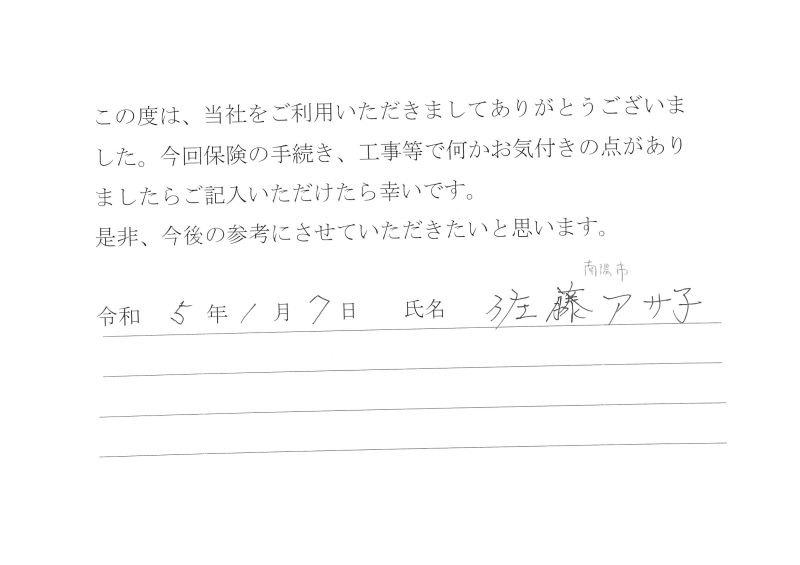 この度は、当社をご利用いただきましてありがとうございま
した。今回保険の手続き、工事等で何かお気付きの点があり
ましたらご記入いただけたら幸いです。
是非、今後の参考にさせていただきたいと思います。
南陽市
令和 5 年 1 月 7 日 氏名 佐藤アサ子